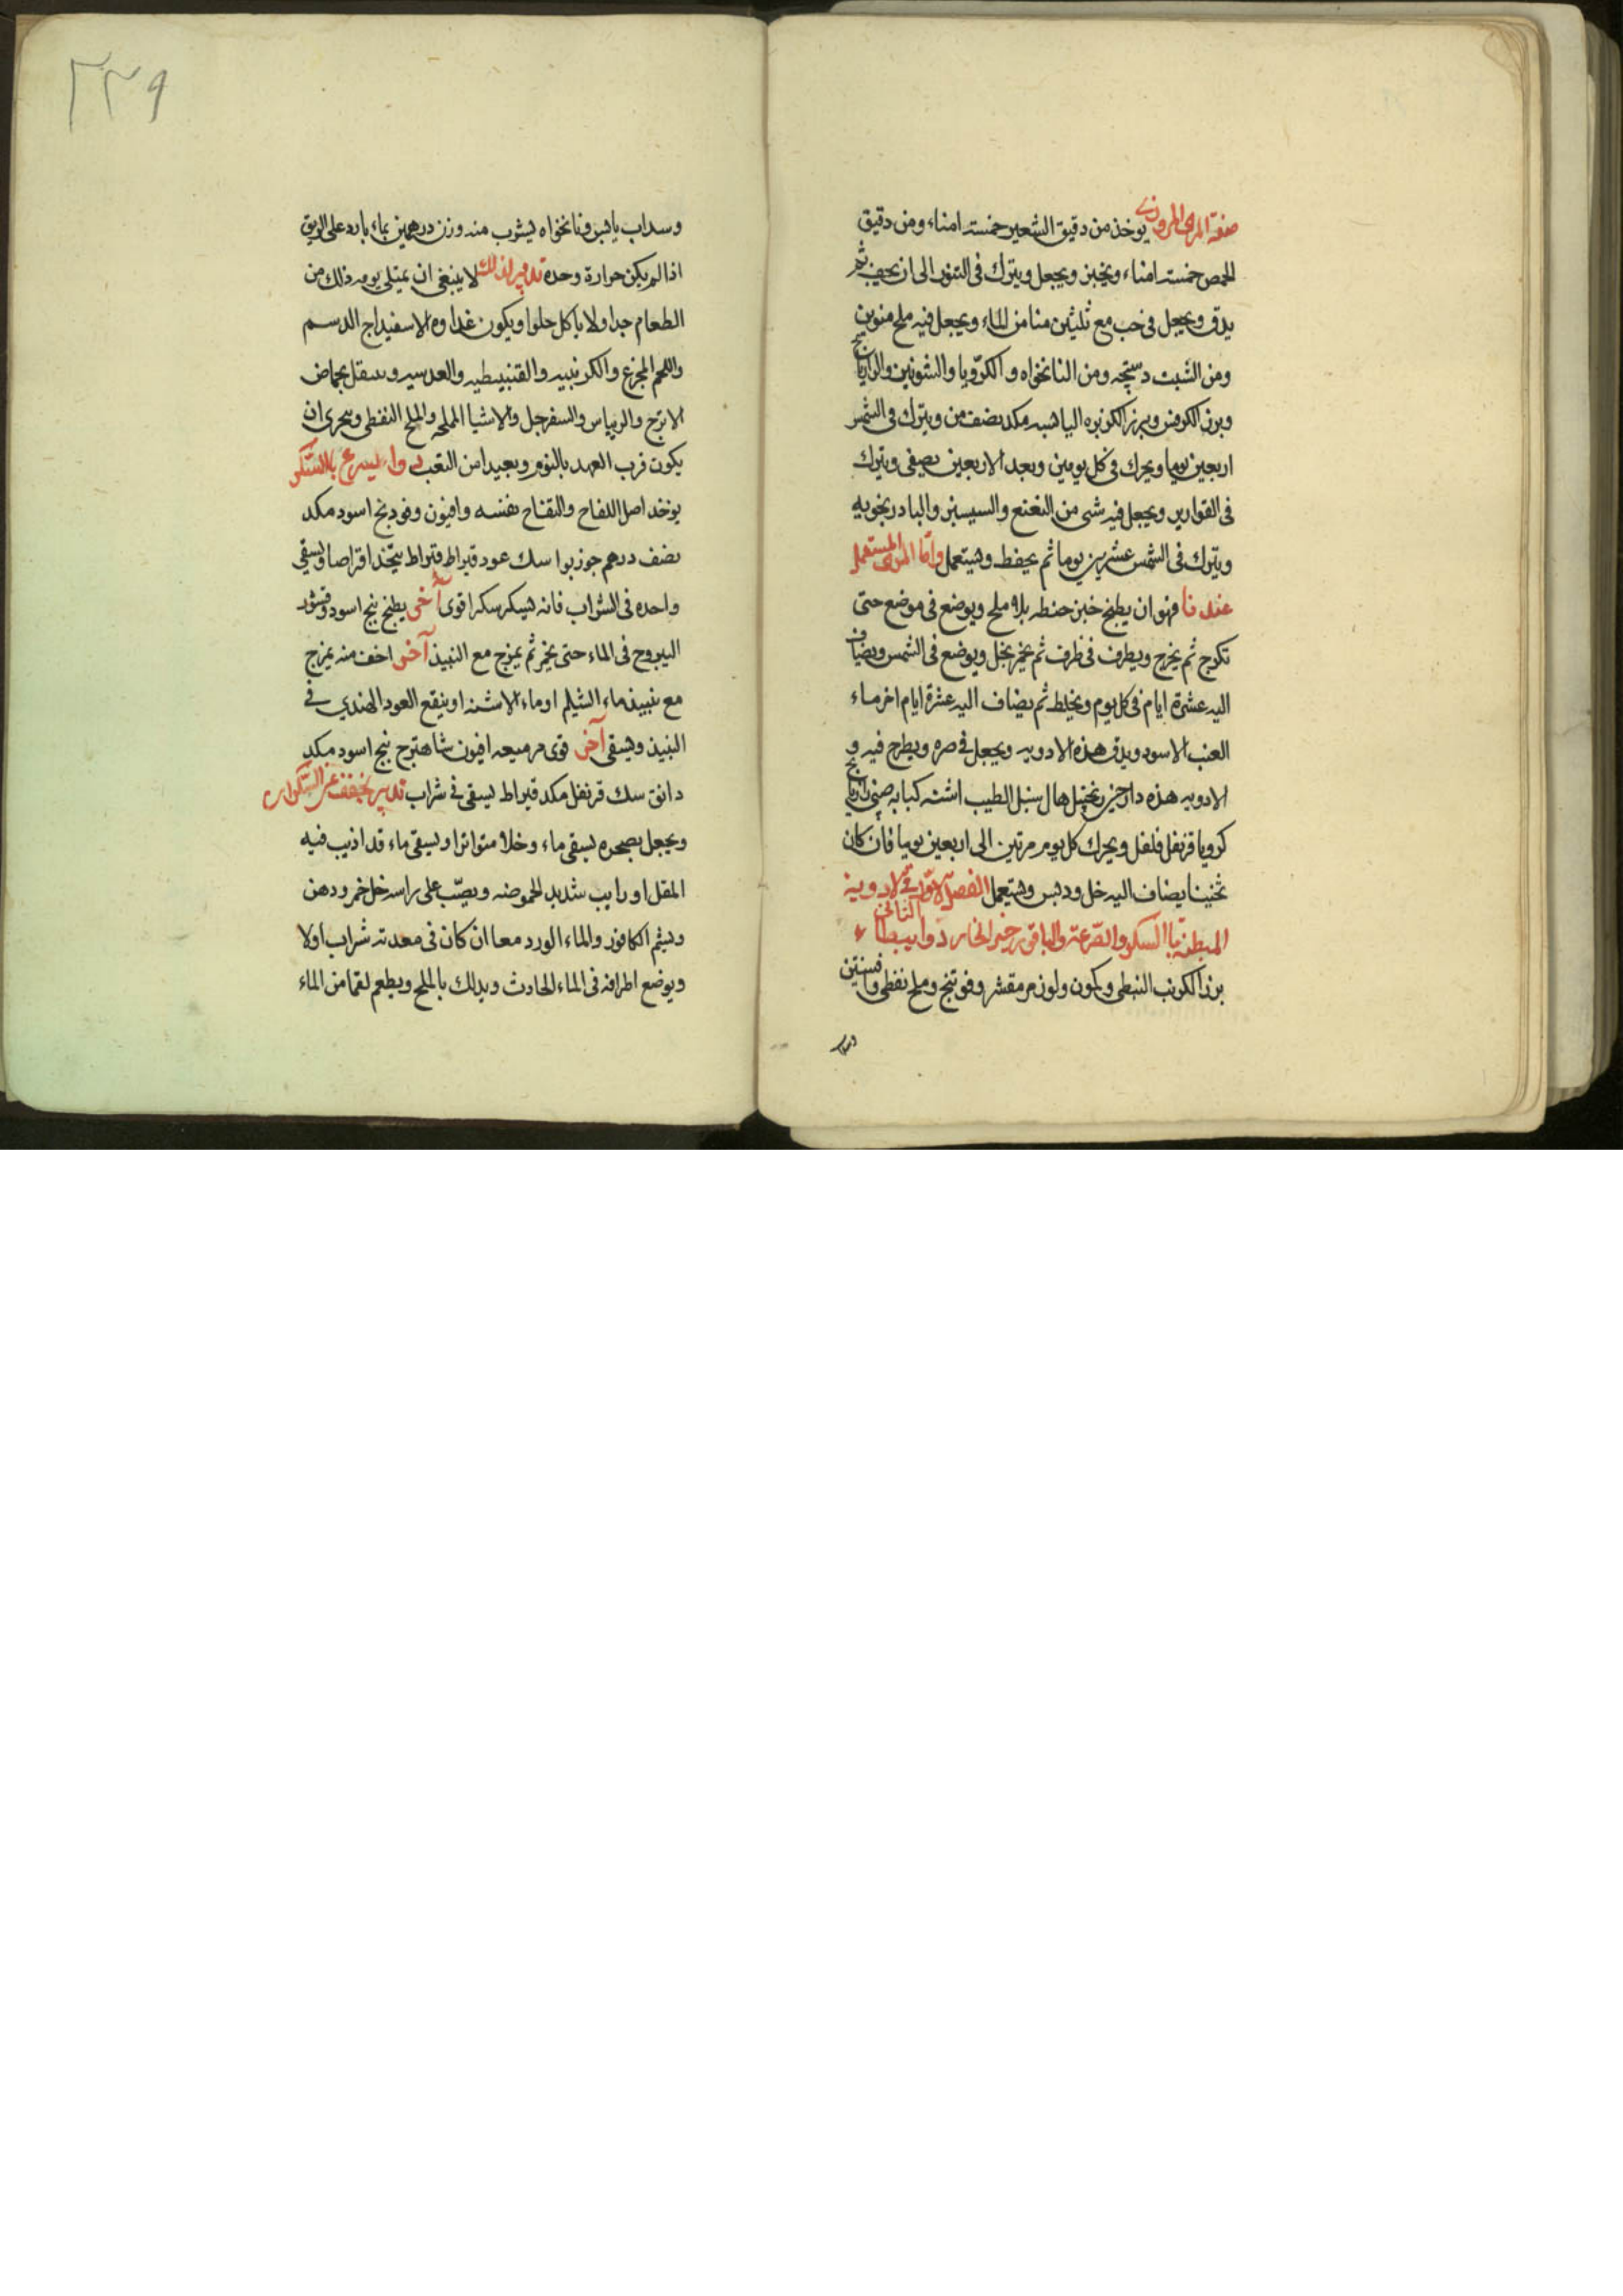 صفة المرى المروزى يوخذ من دقيق الشعير خمسة امناء ومن دقيق
الحمص خمسة امناء ويخبز ويجعل ويترك فى التنور الى ان يجف ثم
يدق ويجعل فى خب مع ثلثين منا من الماء ويجعل فيه ملح منوين
ومن الشبت دستجه ومن النانخواه و الكرويا والشونيز والرازيانج
وبزر الكرفس وبزر الكزبره اليابسه مكد نصف من ويترك فى الشمس
اربعين يوما ويحرك فى كل يومين وبعد الاربعين يصفى ويترك
فى القوارير ويجعل فيه شى من النعنع والسيسنبر والبادرنجويه
ويترك فى الشمس عشرين يوما ثم يحفظ ويستعمل واما المرى المستعمل
عندنا فهو ان يطبخ خبز حنطه بلا ملح ويوضع فى موضع حتى
تكرج ثم يخرج ويطرف فى ظرف ثم يخمر بخل ويوضع فى الشمس ويضاف
اليه عشرة ايام فى كل يوم ويخلط ثم يضاف اليه عشرة ايام اخر ماء
العنب الاسود ويدق هذه الادويه ويجعل فى صره ويطرح فيه و
الادويه هذه دارچينى زنجبيل هال سنبل الطيب اشنه كبابه صينى رازيانج
كرويا قرنفل فلفل ويحرك كل يوم مرتين الى اربعين يوما فان كان
ثخينا يضاف اليه خل ودبس ويستعمل الفصل الثانى فى الادوية
المبطئة با السكر والمسرعة والباقى رخير الخار دوا يبطا
بزر الكرنب النبطى وكمون ولوز مر مقشر وفوتنج وملح نفطى وافسنتين
وسداب
٣٣٩
وسداب يابس ونانخواه يشرب منه وزن درهمين بماء بارد على الريق
اذا لم يكن حرارة وحده تدبير لذلك لا ينبغى ان يمتلى يومه ذلك من
الطعام جدا ولا ياكل حلوا ويكون غداوه الاسفيداج الدسم
واللحم المجزع والكرنبيه والقنبيطيه والعدسيه ويتنقل بحماض
الاترج والريباس والسفرجل والاشيا المملحه والملح النفطى ويتحرى ان
يكون قرب العهد بالنوم وبعيدا من التعب دوا يسرع بالسكر
يوخذ اصل اللفاح والتفاح نفسه وافيون وفودنج اسود مكد
نصف درهم جوزبوا سك عود قيراط قيراط يتخذ اقراصا ويسقى
واحده فى الشراب فانه يسكر سكرا قوى آخر يطبخ بنج اسود وقشور
اليبروح فى الماء حتى يحمر ثم يمزج مع النبيذ آخر اخف منه يمزج
مع نبيذ ماء الشيلم او ماء الاشنه او ينقع العود الهندي فى
النبيذ ويسقى آخر قوى مر ميعه افيون شاهترج بنج اسود مكد
دانق سك قرنفل مكد قيراط يسقى فى شراب تدبير تخفف عن السكران
ويجعل بصحره يسقى ماء وخلا متواترا ويسقى ماء قد اذيب فيه
المقل او رايب شديد الحموضه ويصب على راسه خل خمر ودهن
ويشم الكافور والماء الورد معا ان كان فى معدته شراب اولا
ويوضع اطرافه فى الماء الحادث ويدلك بالملح ويطعم لقما من الماء